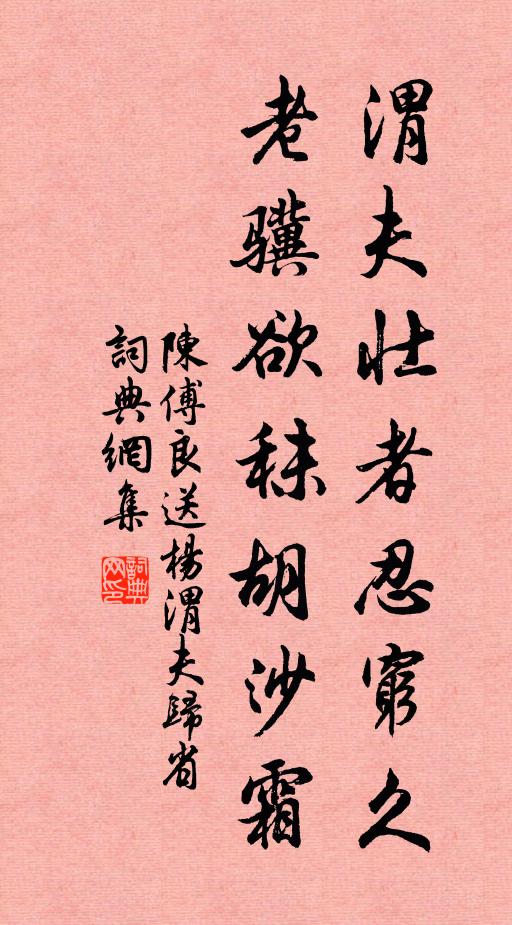 渭夫壮者忍窮久
老骥欲秣胡沙霜
陳傅良送楊渭夫歸省
詞典網集
詞典网印